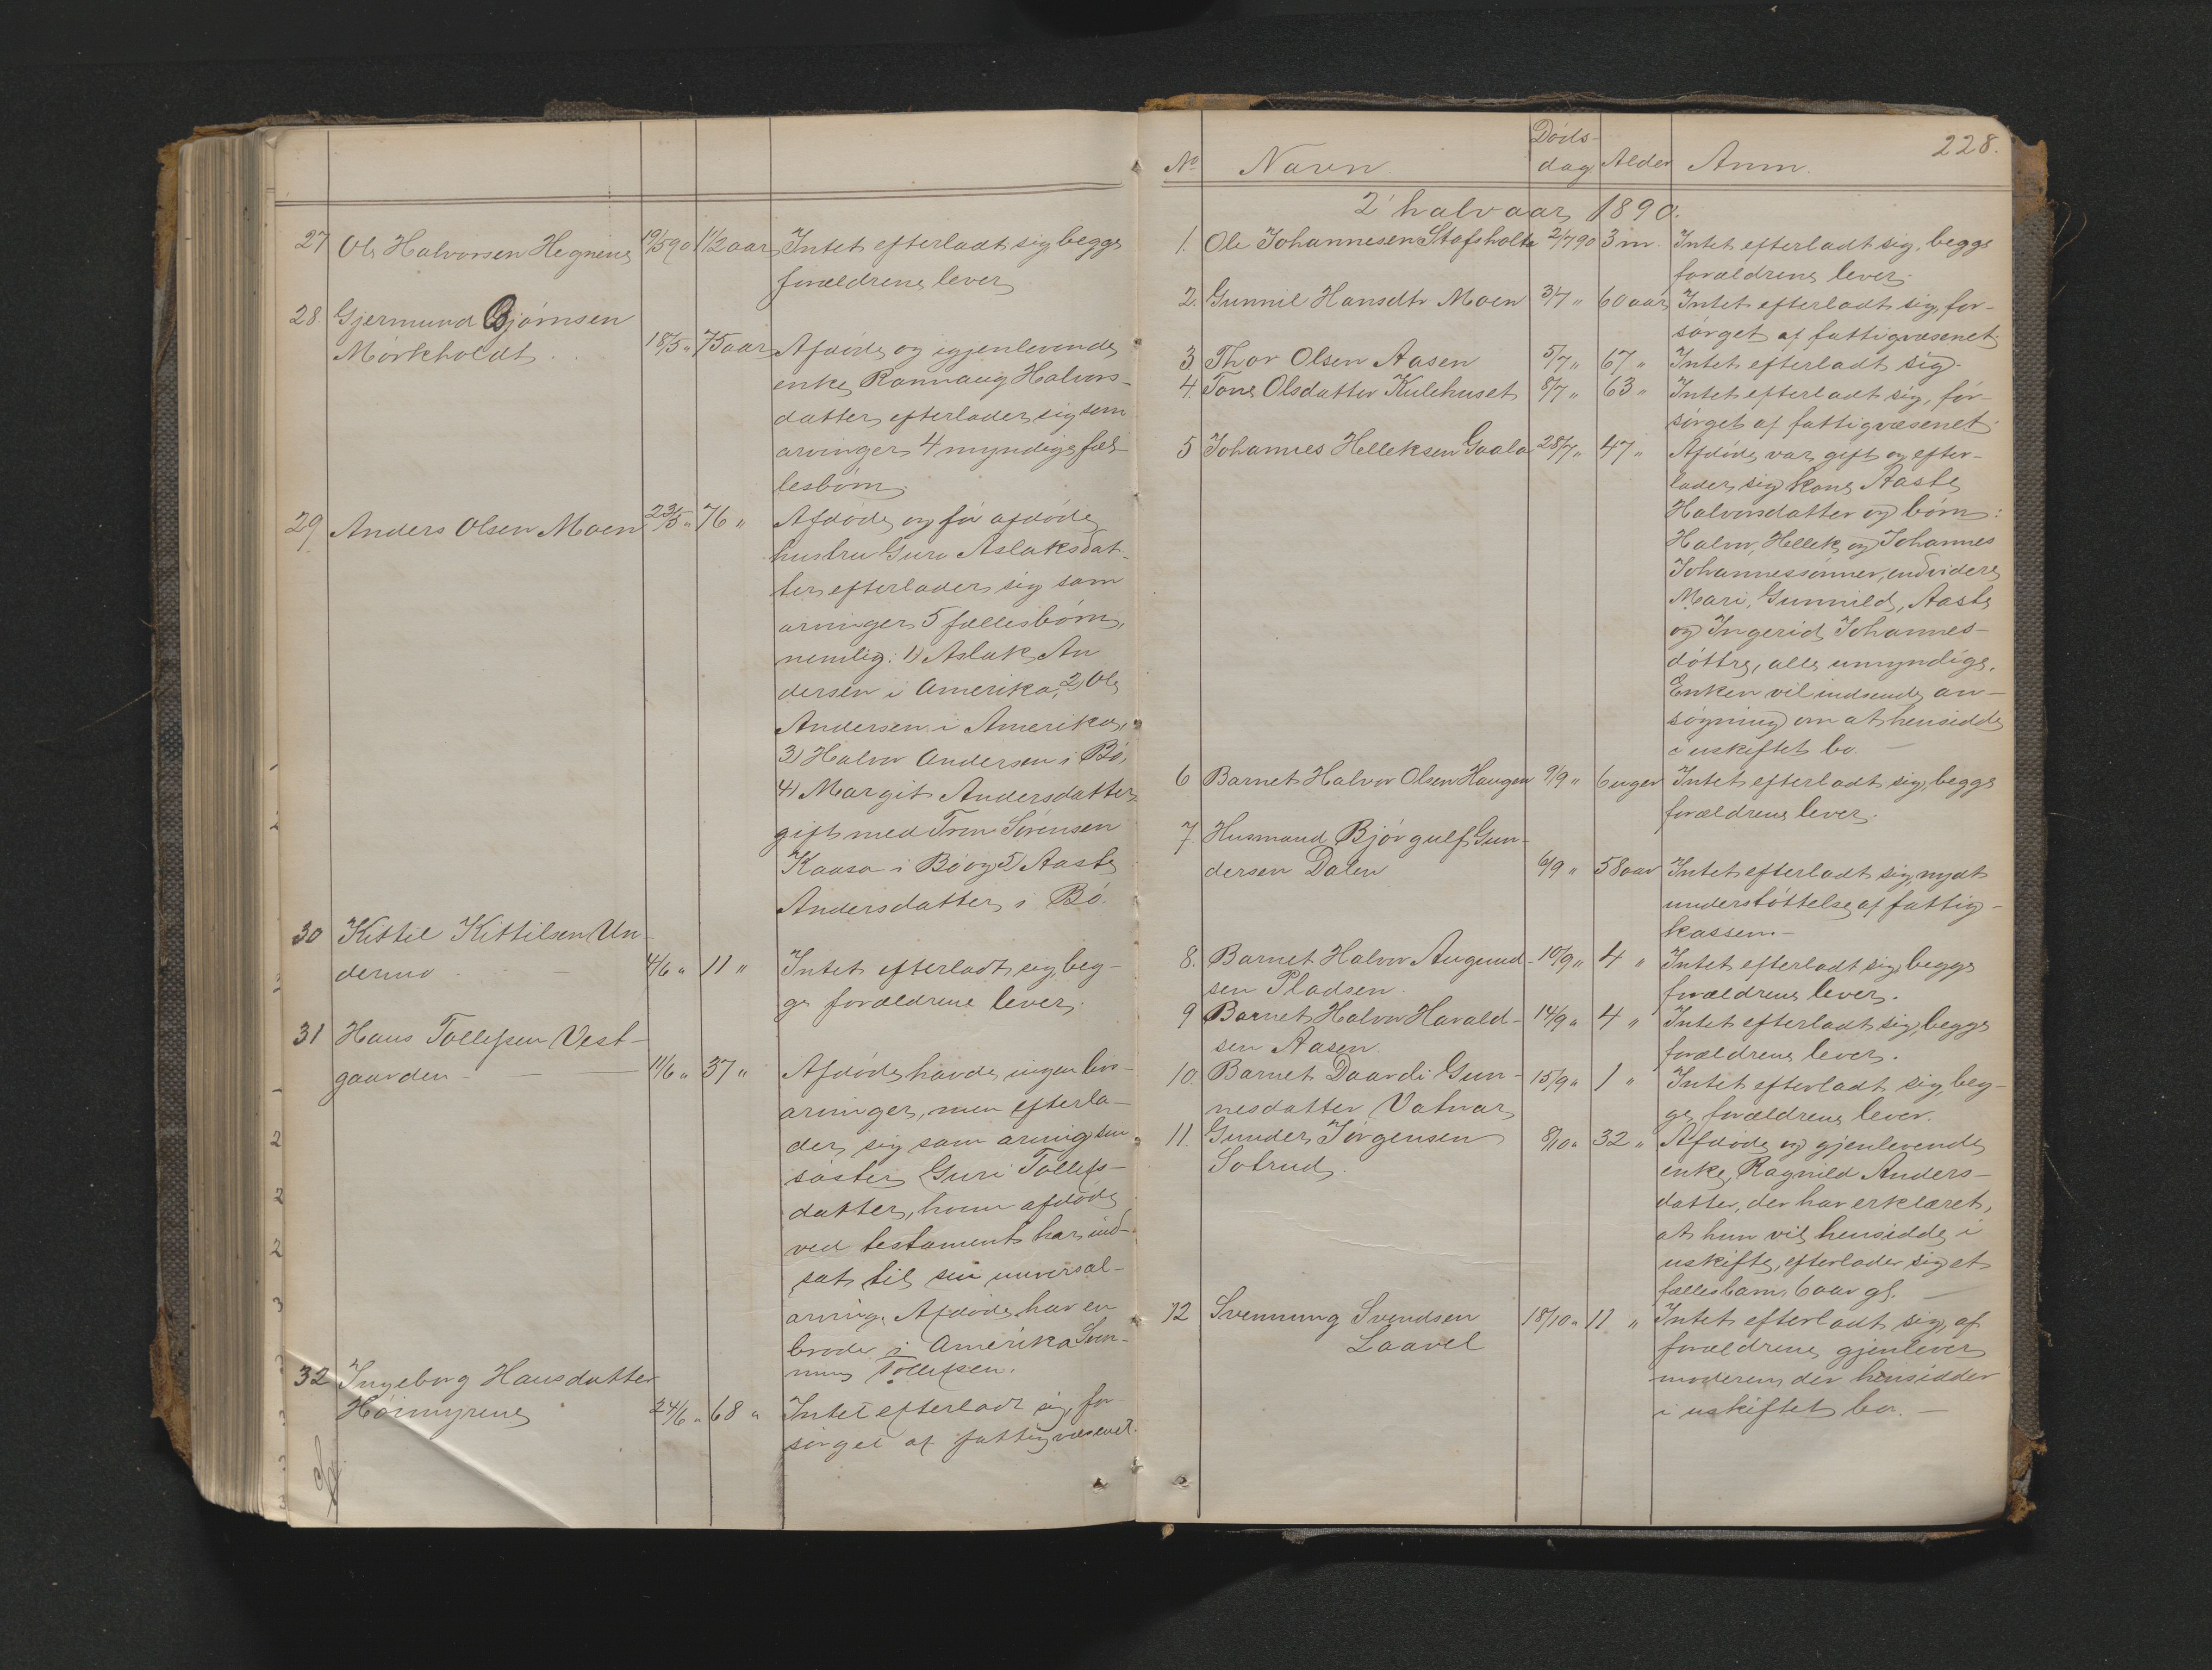 27 Ole Halvorsen Hegnene 19/5 90 1 1/2 aar Intet efterladt sig, begge
forældrene lever
28 Gjermund Bjørnsen
Mørkholdt 18/5 " 75 aar Afdøde og igjenlevende
enke Rannaug Halvors-
datter efterlader sig som
arvinger 4 myndige fæl-
lesbørn.
29 Anders Olsen Moen 23/5 " 76 " Afdøde og før afdøde
hustru Guro Aslaksdat-
ter efterlader sig som
arvinger 5 fællesbørn,
nemlig: 1) Aslak An
dersen i Amerika, 2) Ole
Andersen i Amerika,
3) Halvor Andersen i Bø,
4) Margit Andersdatter
gift med Tron Sørensen
Kaasa i Bø og 5) Aaste
Andersdatter i Bø.
30 Kittil Kittilsen Un-
dermo 4/6 " 11 " Intet efterladt sig, beg-
ge forældrene lever.
31 Hans Tollefsen Vest-
gaarden 11/6 " 37 " Afdøde havde ingen livs-
arvinger, men efterla-
der sig som arving sin
søster Guri Tollefs-
datter, hvem afdøde
ved testament har ind-
sat til sin universal-
arving. Afdøde har en
broder i Amerika Sven-
nung Tollefsen.
32 Ingeborg Hansdatter
Høimyrene 24/6 " 68 " Intet efterladt sig, for-
sørget af fattigvæsenet.
228.
No Navn. Døds-
dag Alder Anm.
2' halvaar 1890.
1. Ole Johannesen Stafsholte 2/7 90 3 m. Intet efterladt sig, begge
forældrene lever.
2. Gunnil Hansdtr Moen 3/7 " 60 aar Intet efterladt sig, for-
sørget af fattigvæsenet
3 Thor Olsen Aasen 5/7 " 67 " Intet efterladt sig.
4. Tone Olsdatter Kulehuset 8/7 " 63 " Intet efterladt sig, for-
sørget af fattigvæsenet.
5 Johannes Helleksen Gaala 28/7 " 47 " Afdøde var gift og efter-
lader sig kone Aaste
Halvorsdatter og børn:
Halvor, Hellek og Johannes
Johannessønner, endvidere
Mari, Gunnild, Aaste
og Ingerid Johannes-
døttre, alle umyndige.
Enken vil indsende an-
søgning om at hensidde
i uskiftet bo. —
6 Barnet Halvor Olsen Haugen 9/9 " 6 uger Intet efterladt sig, begge
forældrene lever.
7. Husmand Bjørgulf Gun-
dersen Dalen 6/9 " 58 aar Intet efterladt sig, nydt
understøttelse af fattig-
kassen.—
8. Barnet Halvor Augund- 10/9 " 4 " Intet efterladt sig, begge
sen Pladsen. forældrene lever.
9 Barnet Halvor Harald- 14/9 " 4 " Intet efterladt sig, begge
sen Aasen. forældrene lever.
10. Barnet Daardi Gun- 15/9 " 1 " Intet efterladt sig, beg-
nesdatter Vatnar ge forældrene lever.
11. Gunder Jørgensen 8/10 " 32 " Afdøde og gjenlevende
Solrud. enke, Ragnild Anders-
datter, der har erklæret,
at hun vil hensidde i
uskifte, efterlader sig et
fællesbarn, 6 aar gl. —
12 Svennung Svendsen 18/10 " 11 " Intet efterladt sig, af
Laavel forældrene gjenlever
moderen, der hensidder
i uskiftet bo. —